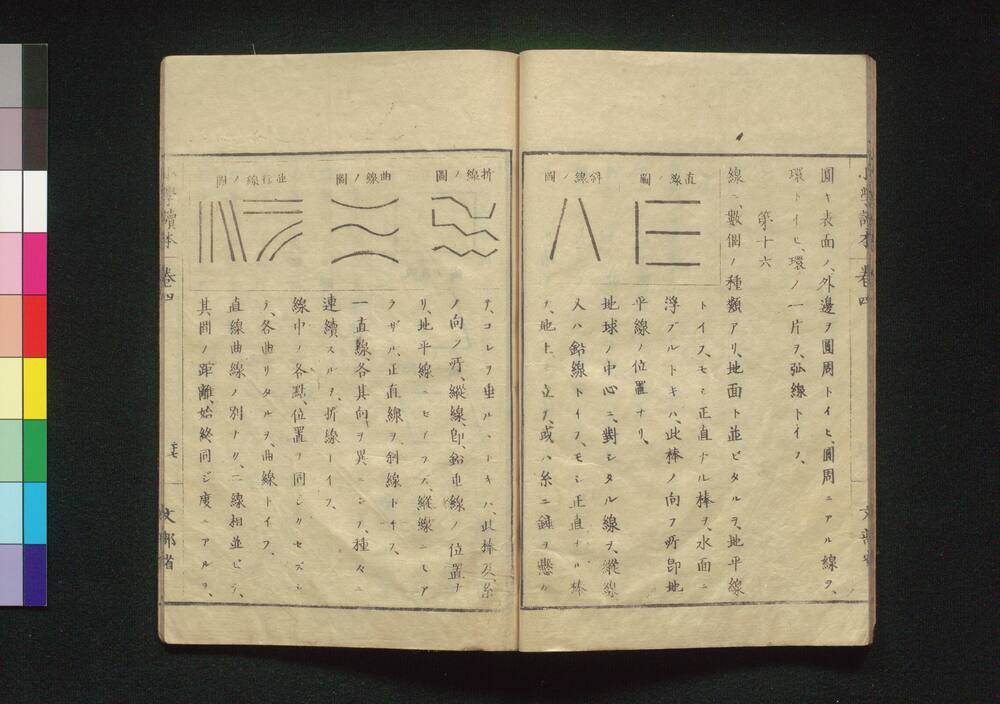 圓キ表面ノ、外邊ヲ圓周トイヒ、圓周ニアル線ヲ、
環トイヒ、環ノ一片ヲ、弧線トイフ、
第十六
線ニ、數個ノ種類アリ、地面ト並ビタルヲ、地平線
トイフ、モシ正直ナル棒ヲ、水面ニ
浮ブルトキハ、此棒ノ向フ所、卽地
平線ノ位置ナリ、
地球ノ中心ニ、對シタル線ヲ、縱線
又ハ鉛線トイフ、モシ正直ナル棒
ヲ、地上ニ立テ、或ハ糸ニ錘ヲ懸ケ
直線ノ圖
斜線ノ圖
テ、コレヲ垂ルヽトキハ、此棒及糸
ノ向ノ所、縱線、卽、鉛垂線ノ位置ナ
リ、地平線ニモアラズ、縱線ニモア
ラザル、正直線ヲ、斜線トイフ、
一直線、各其向ヲ異ニシテ、種々ニ
連續スルヲ、折線トイフ、
線中ノ各點、位置ヲ同ジクセズシ
テ、各曲リタルヲ、曲線トイフ、
直線曲線ノ別ナク、二線相並ビテ、
其間ノ距離、始終同ジ度ニアルヲ、
折線ノ圖
曲線ノ圖
並行線ノ圖
小學讀本
卷四
文部省